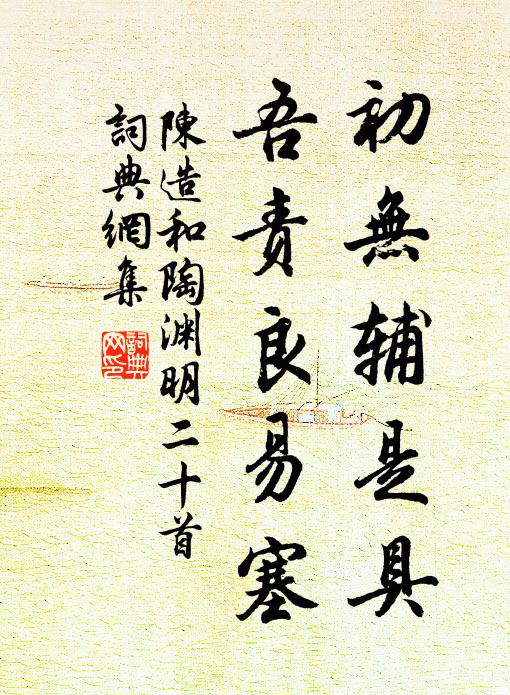 初無輔是具
吾責良易塞
陳造和陶渊明二十首
詞典網集
詞典
网印